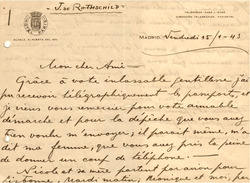 J. DE ROTHSCHILD
MADRID, Vendredi 15/1-43
Mon cher Ami-
Grâce à votre inlassable gentillesse j'ai
pu recevoir télégraphiquement le passeport, et
je viens vous remercier pour votre aimable
démarche et pour la dépêche que vous avez
bien voulu m'envoyer, il parait même, m'a
dit ma femme, que vous avez pris la peine
de donner un coup de téléphone.-
Nicole et sa mère partent par avion pour
Lisbonne, mardi matin, Monique et moi, par